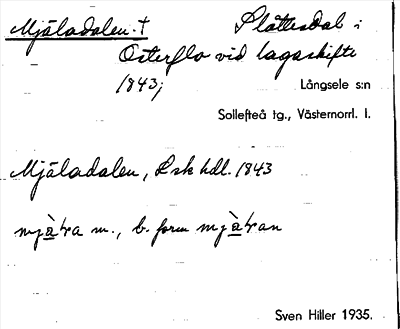 Mjäladalen. † Slåttesdal i
Österflo vid lagaskifte
1843; Långsele s:n
Sollefteå tg., Västernorrl. l.
Mjäladalen, Lsk hdl. 1843
m., b. form
Sven Hiller 1935.